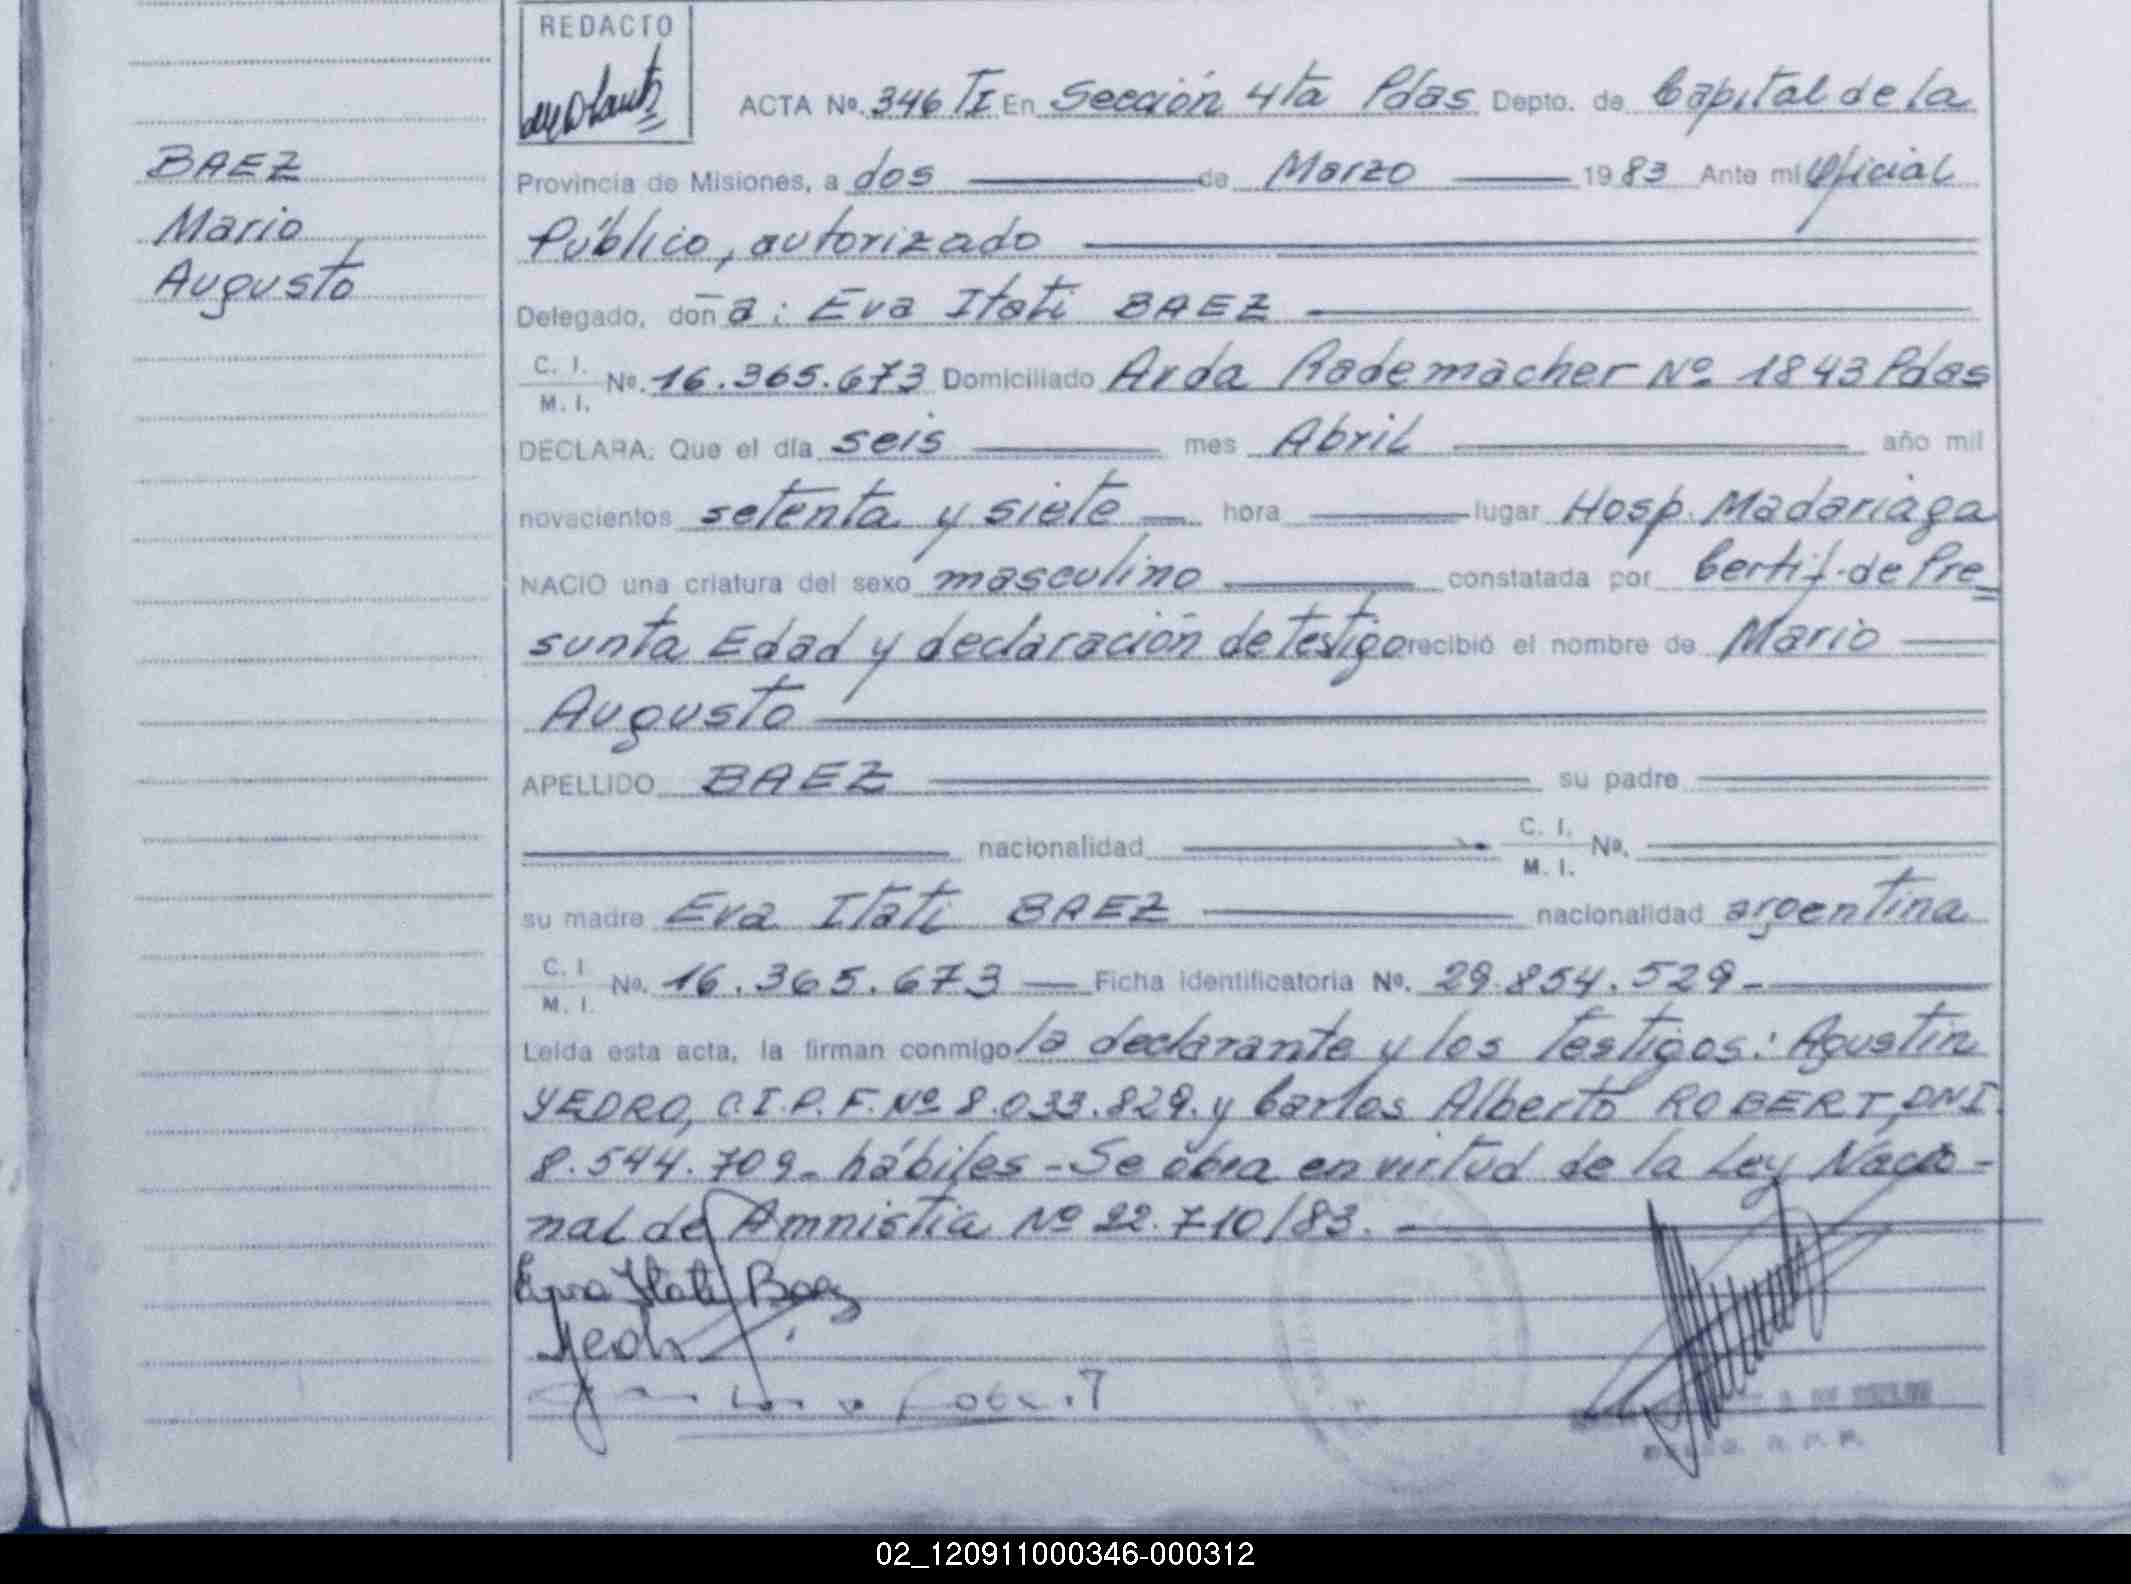 REDACTO
ACTA Nº. 346 TI En Sección 4ta Pdas Depto. de Capital de la
BAEZ
Provincia de Misiones, a dos de Marzo 1983 Ante mí Oficial
Mario
Público, autorizado
Augusto
Delegado, doña: Eva Itatí BAEZ
C. I. M. I. Nº. 16.365.673 Domiciliado Avda Rademacher Nº 1843 Pdas
DECLARA: Que el día seis mes Abril año mil
novecientos setenta y siete hora lugar Hosp. Madariaga
NACIO una criatura del sexo masculino constatada por Certif. de Pre
sunta Edad y declaración de testigo recibió el nombre de Mario
Augusto
APELLIDO BAEZ su padre
nacionalidad C. I. M. I. Nº.
su madre Eva Itatí BAEZ nacionalidad argentina
C. I M. I. Nº. 16.365.673 Ficha identificatoria Nº. 29.854.529-
Leída esta acta, la firman conmigo la declarante y los testigos: Agustin
YEDRO, C.I.P.F. Nº 8.033.829. y Carlos Alberto ROBERT, DNI
8.544.709- hábiles - Se obra en virtud de la Ley Nacio-
nal de Amnistia Nº 22.710/83.
Eva Itati Baez
02_120911000346-000312